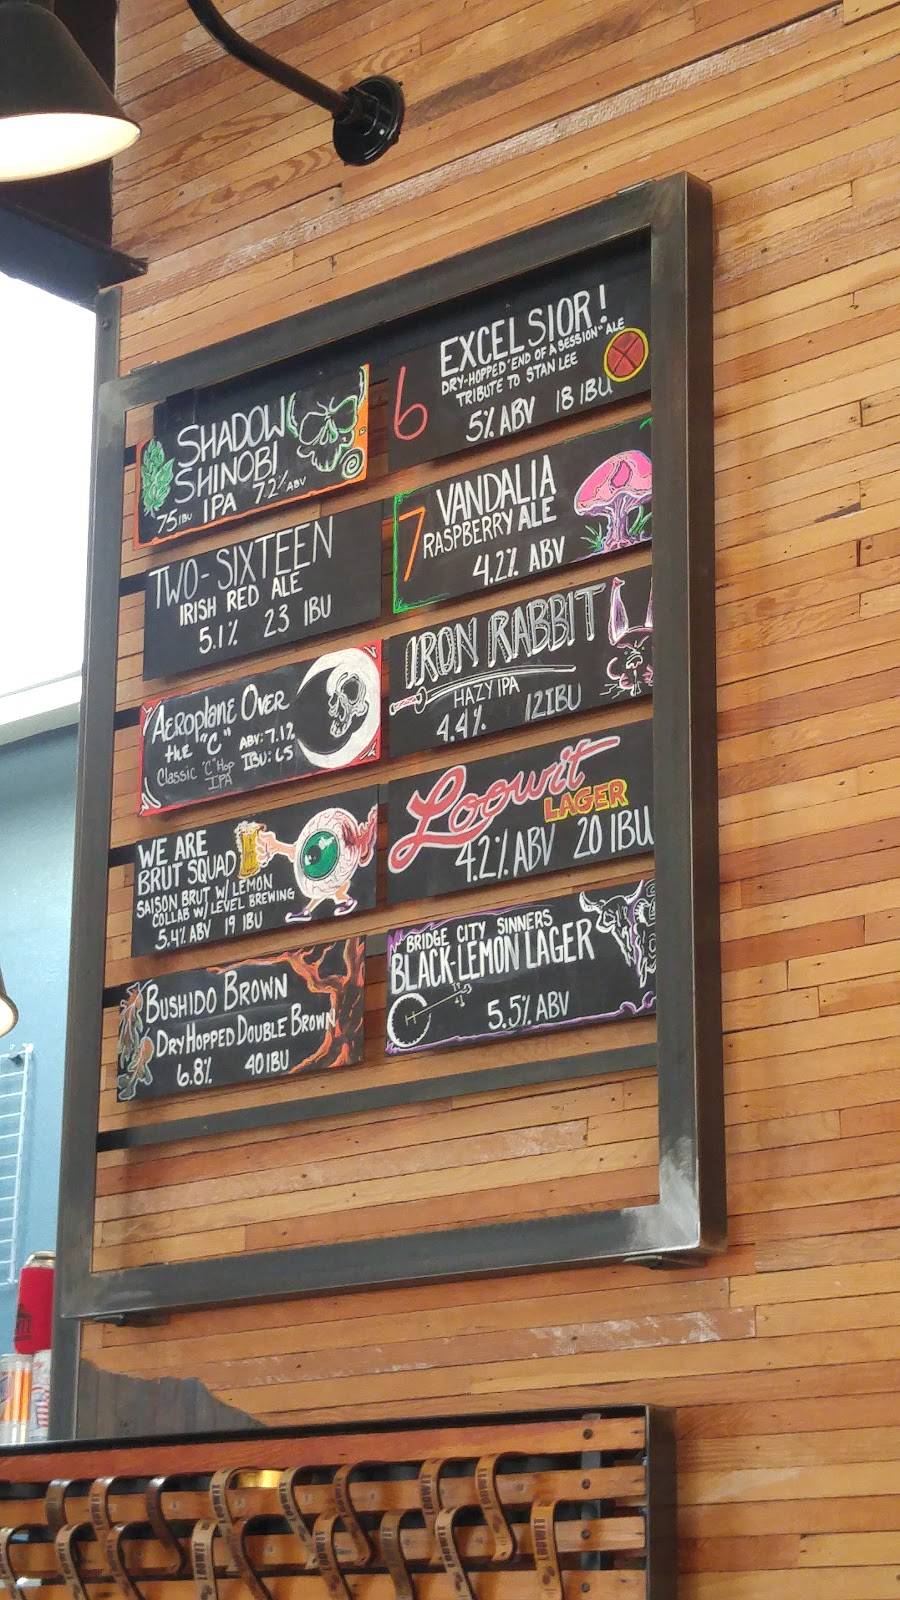 SHADOW
SHINOBI
75 IBU IPA 7.2% ABV
TWO-SIXTEEN
IRISH RED ALE
5.1% 23 IBU
AEROPLANE OVER
the "C" ABV: 7.1%
Classic "C" Hop IBU: 65
IPA
WE ARE
BRUT SQUAD
SAISON BRUT W/ LEMON
COLLAB W/ LEVEL BREWING
5.4% ABV 19 IBU
BUSHIDO BROWN
DRY HOPPED DOUBLE BROWN
6.8% 40 IBU
6
EXCELSIOR!
DRY-HOPPED "END OF A SESSION" ALE
TRIBUTE TO STAN LEE
5% ABV 18 IBU
7
VANDALIA
RASPBERRY ALE
4.2% ABV
IRON RABBIT
HAZY IPA
4.4% 12 IBU
Loowit
LAGER
4.2% ABV 20 IBU
BRIDGE CITY SINNERS
BLACK-LEMON LAGER
5.5% ABV
LOOWIT
LOOWIT
LOOWIT
LOOWIT